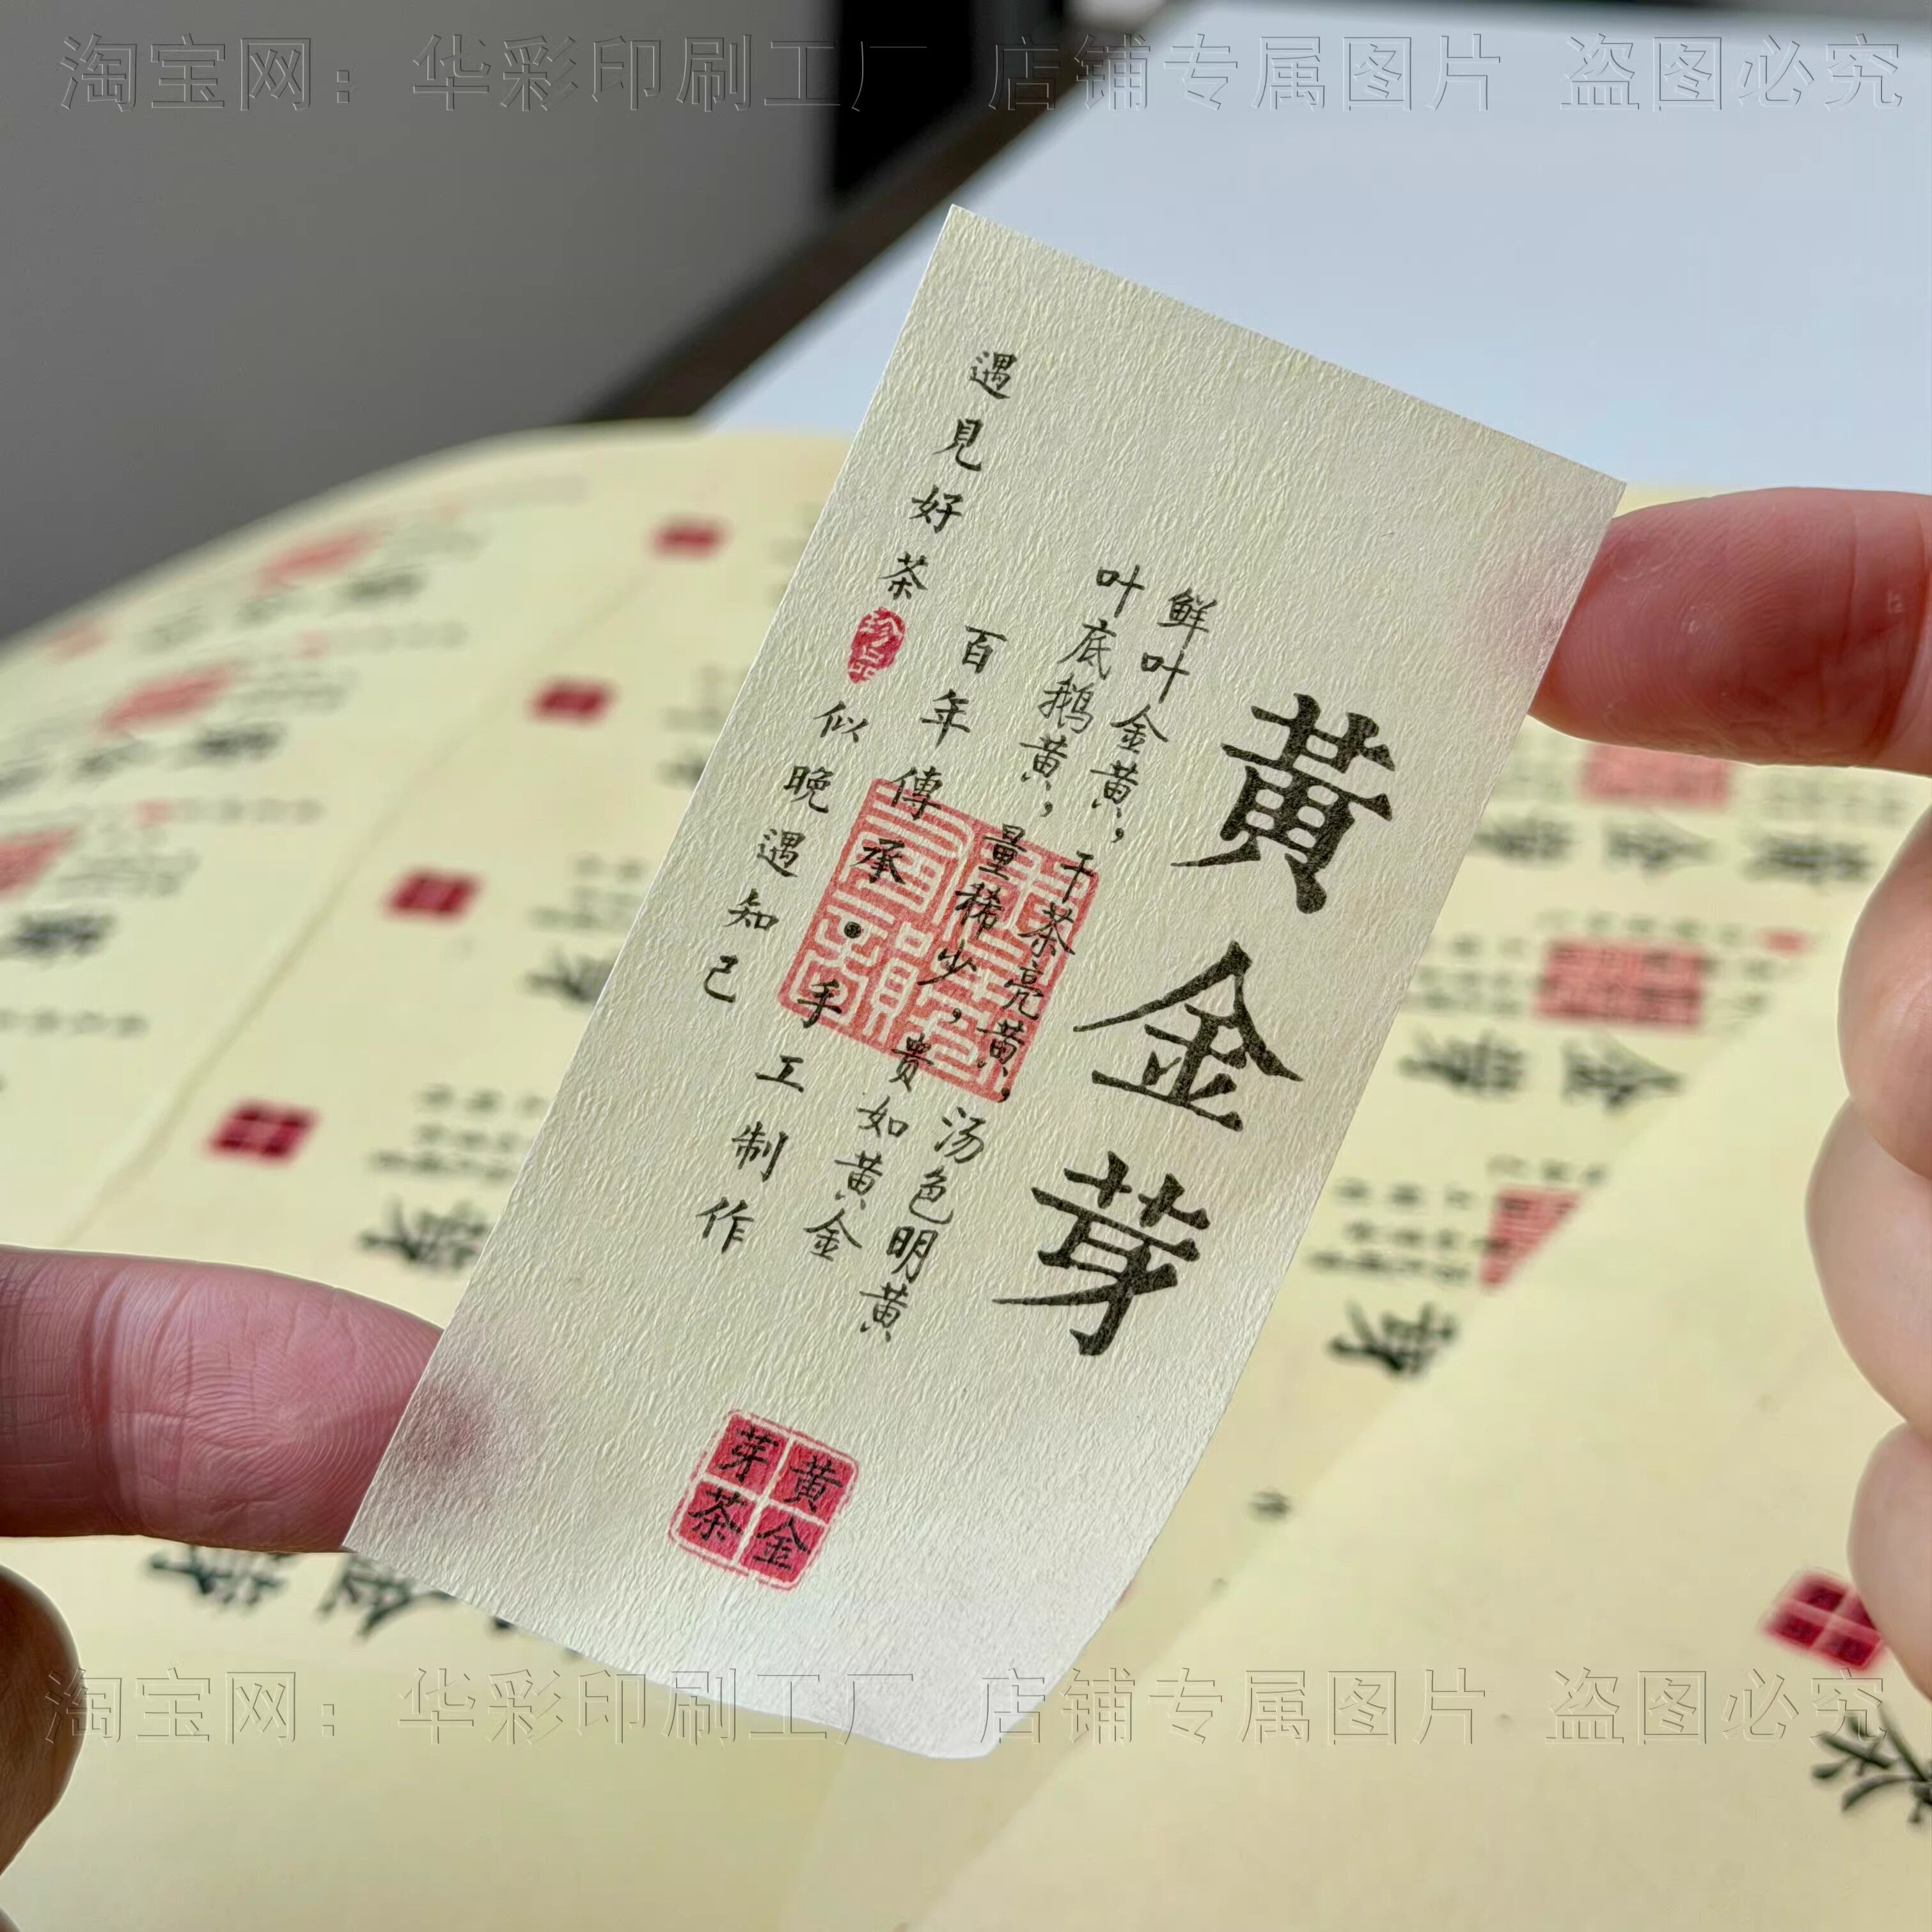 淘宝网：华彩印刷工厂 店铺专属图片 盗图必究
黃金芽
鲜叶金黄，干茶亮黄，汤色明黄
叶底鹅黄，量稀少，贵如黄金
百年傳承•手工制作
遇見好茶
珍品
似晚遇知己
黄金
芽茶
淘宝网：华彩印刷工厂 店铺专属图片 盗图必究